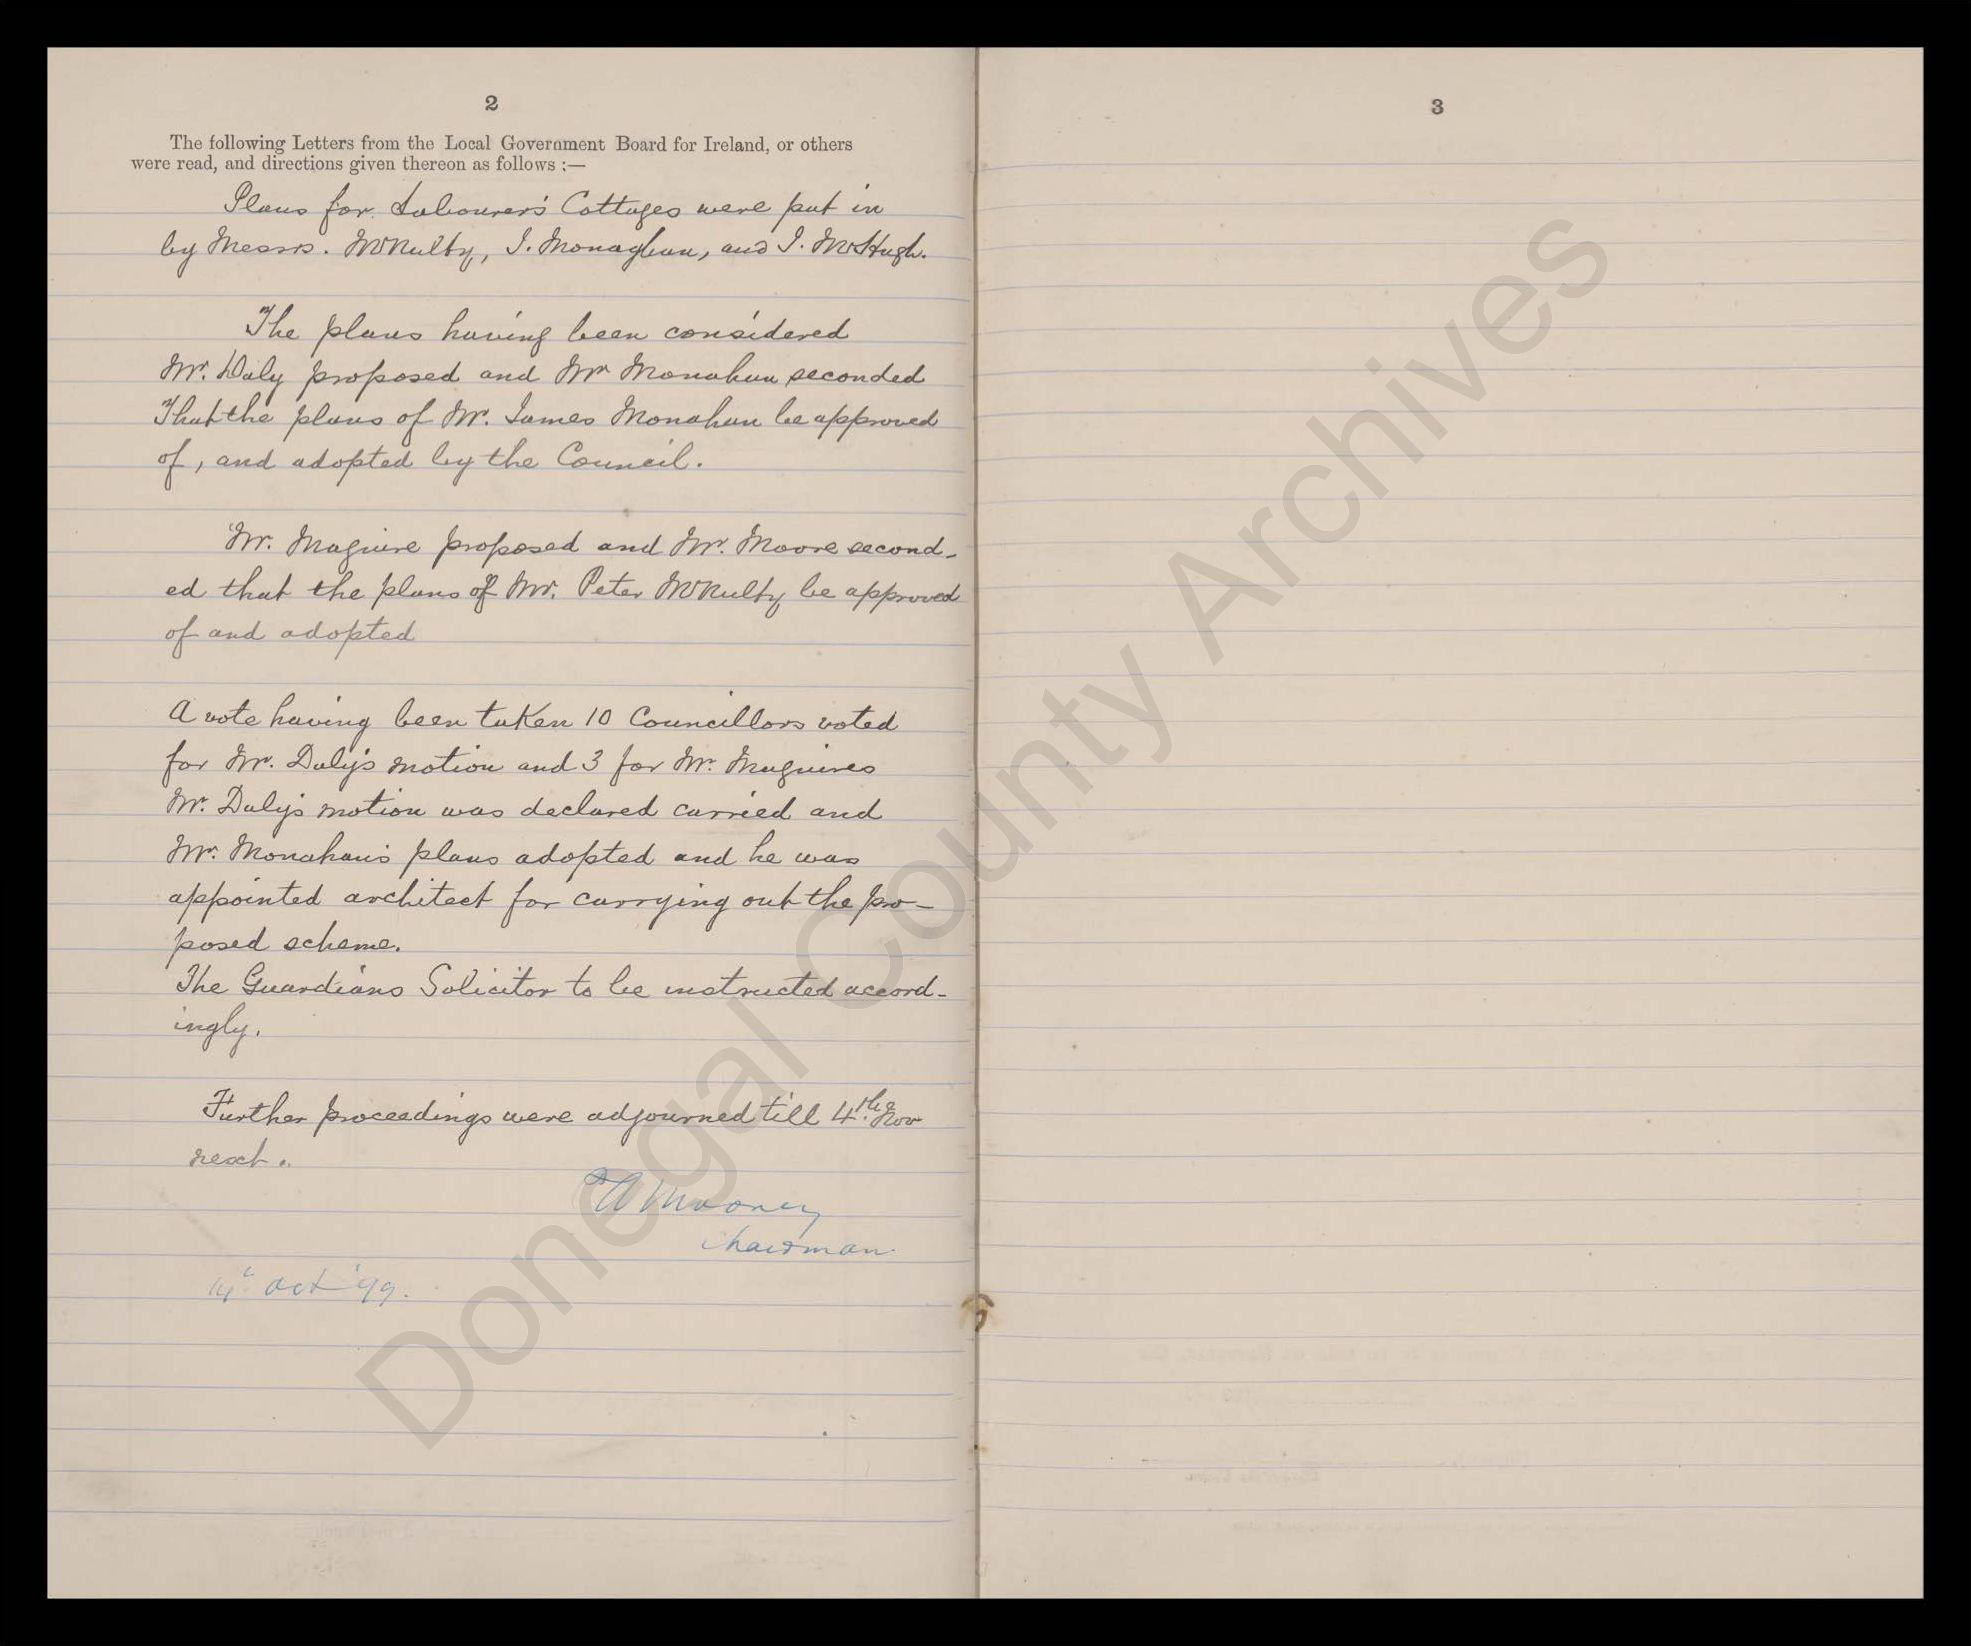 2
The following Letters from the Local Government Board for Ireland, or others
were read, and directions given thereon as follows :—
Plans for Labourer's Cottages were put in
by Messrs. McNulty, J. Monaghan, and J. McHugh.
The plans having been considered
Mr. Daly proposed and Mr Monahan seconded
That the plans of Mr. James Monahan be approved
of, and adopted by the Council.
Mr. Maguire proposed and Mr. Moore second-
ed that the plans of Mr. Peter McNulty be approved
of and adopted
A vote having been taken 10 Councillors voted
for Mr. Daly's motion and 3 for Mr. Maguires
Mr. Daly's motion was declared carried and
Mr. Monahan's plans adopted and he was
appointed architect for carrying out the pro-
posed scheme.
The Guardians Solicitor to be instructed accord-
ingly.
Further proceedings were adjourned till 4th Nov
next.
Mooney
Chairman
14 Oct '99.
3
Donegal County Archives